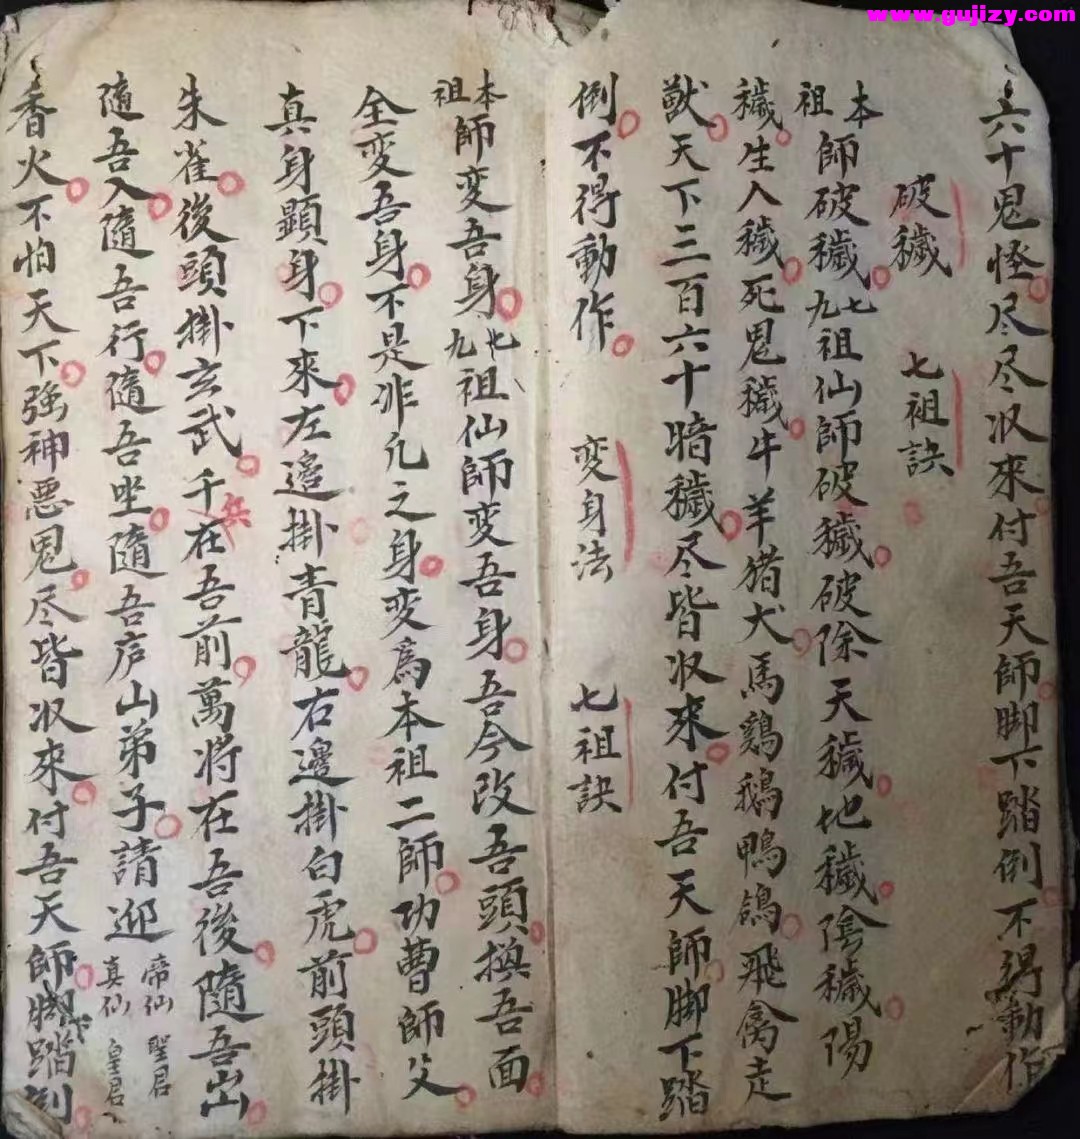 www.gujizy.com
六十鬼怪尽尽收來付吾天師脚下踏倒不得動作
破穢 七祖訣
本祖師破穢七九祖仙師破穢破除天穢地穢陰穢陽
穢生人穢死鬼穢牛羊猪犬馬鷄鵝鴨鴿飛禽走
獸天下三百六十暗穢尽皆收來付吾天師脚下踏
倒不得動作 变身法 七祖訣
本祖師变吾身七九祖仙師变吾身吾今改吾頭換吾面
全变吾身不是非凡之身变為本祖二師功曹師父
真身顕身下來左邉掛青龍右邉掛白虎前頭掛
朱雀後頭掛玄武千兵在吾前萬将在吾後隨吾出
隨吾入隨吾行隨吾坐隨吾庐山弟子請迎帝仙真仙聖君皇君
香火不怕天下強神惡鬼尽皆收來付吾天師脚踏倒